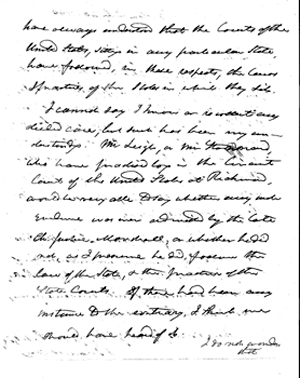 have always understood that the Courts of the
United States, sitting in any particular State,
have followed, in these respects, the laws
& practice of the States in which they sit.
I cannot say I know or recollect any
decided case, but such has been my un-
derstanding. Mr Leigh, or Mr
who have practised long in the Circuit
Court of the United States at Richmond,
would be very able to say whether any such
Evidence was ever admitted by the late
Ch. Justice Marshall, or whether he did
not, as I presume he did, follow the
law of the State, & the practice of the
State Courts. If there had been any
instance to the contrary, I think we
should have heard of it.
I do not wonder
that